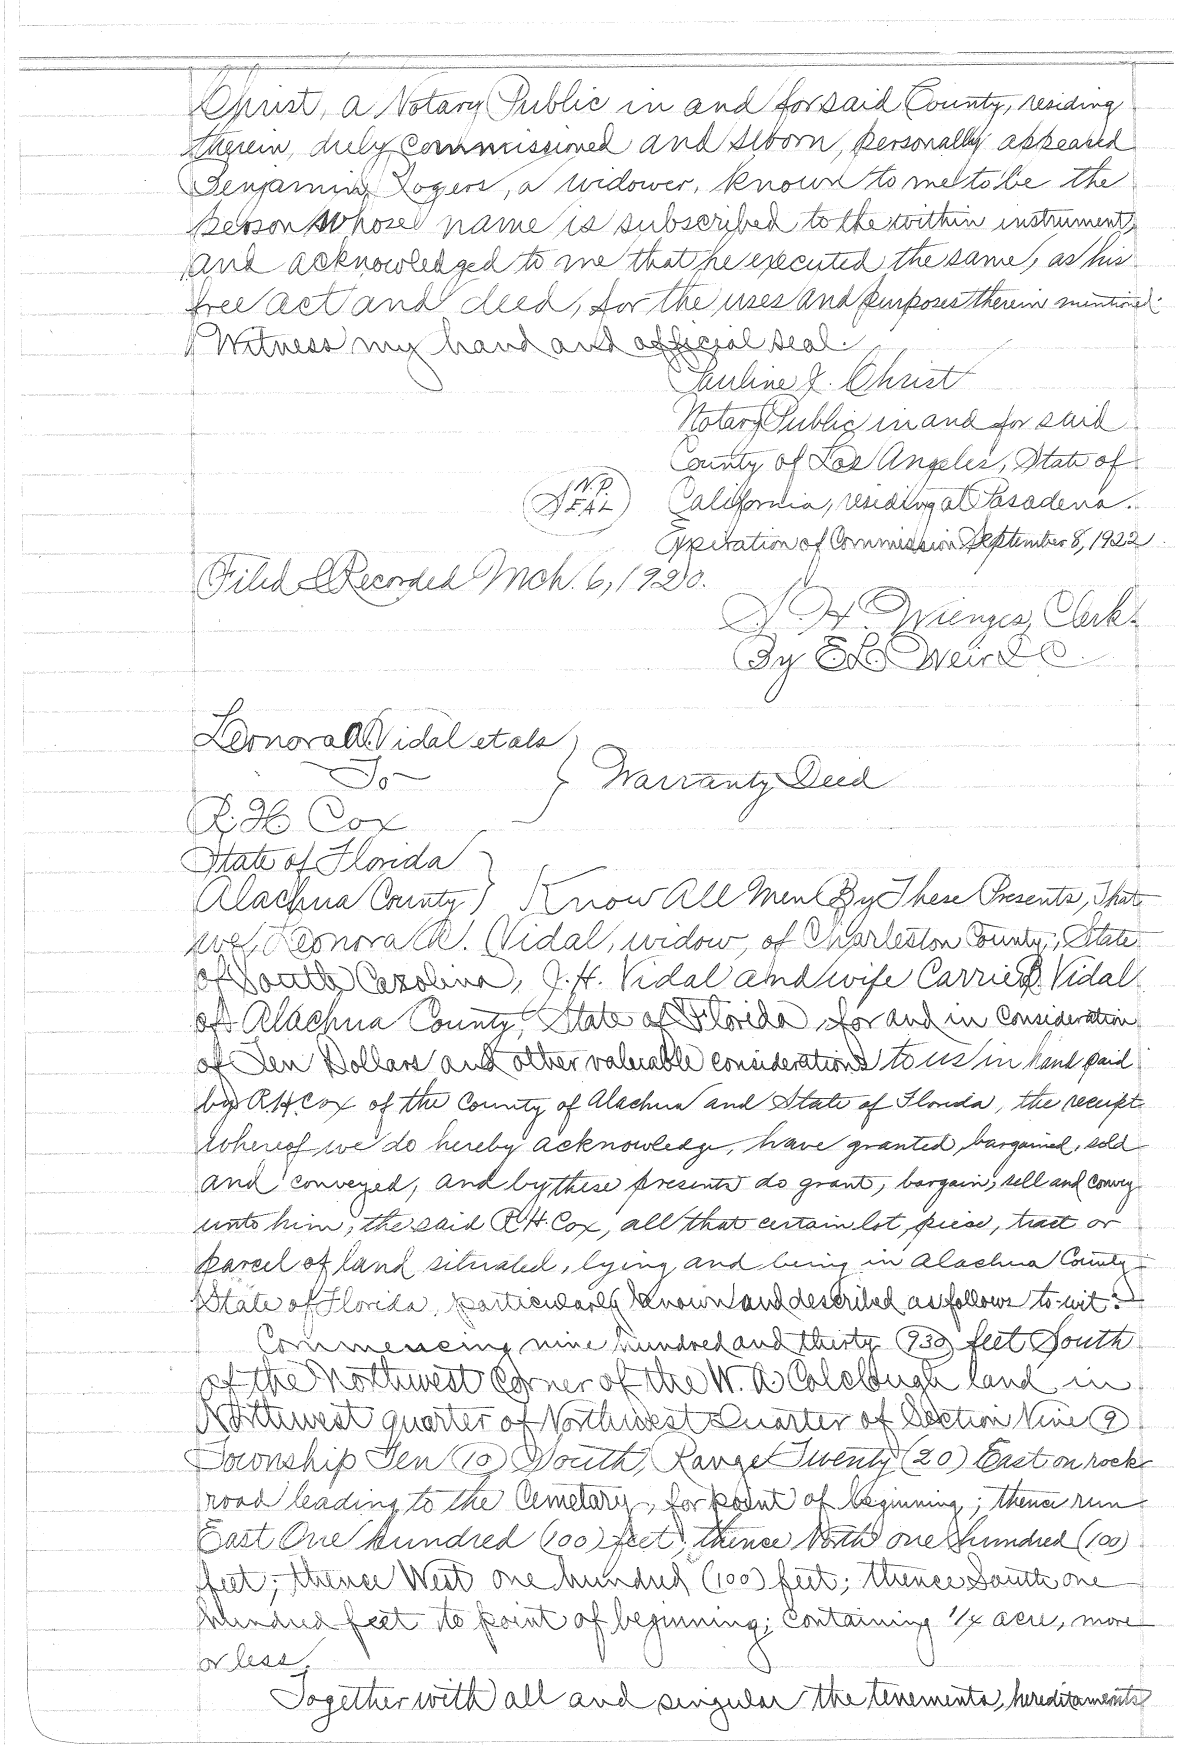 Christ, a Notary Public in and for said County, residing
therein, duly commissioned and sworn, personally appeared
Benjamin Rogers, a widower, known to me to be the
person whose name is subscribed to the within instrument,
and acknowledged to me that he executed the same, as his
free act and deed, for the uses and purposes therein mentioned.
Witness my hand and official seal.
Pauline J. Christ
Notary Public in and for said
County of Los Angeles, State of
N.P.
SEAL
California, residing at Pasadena.
Expiration of Commission September 8, 1922.
Filed & Recorded Mch. 6, 1920.
S. H. Wienges, Clerk.
By E L Weir D C.
Leonora A. Vidal et als
To
Warranty Deed
R. H. Cox
State of Florida
Alachua County } Know All Men By These Presents, That
we, Leonora A. Vidal, widow, of Charleston County, State
of South Carolina, J. H. Vidal and wife Carrie Vidal
of Alachua County, State of Florida, for and in consideration
of Ten Dollars and other valuable considerations to us in hand paid
by R.H. Cox of the County of Alachua and State of Florida, the receipt
whereof we do hereby acknowledge, have granted, bargained, sold
and conveyed, and by these presents do grant, bargain, sell and convey
unto him, the said R.H. Cox, all that certain lot, piece, tract or
parcel of land situated, lying and being in Alachua County
State of Florida, particularly known and described as follows to-wit:-
Commencing nine hundred and thirty (930) feet South
of the Northwest corner of the W. A. Colclough land in
Northwest quarter of Northwest Quarter of Section Nine (9)
Township Ten (10) South, Range Twenty (20) East on rock
road leading to the Cemetary, for point of beginning; thence run
East One hundred (100) feet; thence North one hundred (100)
feet; thence West one hundred (100) feet; thence South one
hundred feet to point of beginning; containing 1/4 acre, more
or less.
Together with all and singular the tenements, hereditaments